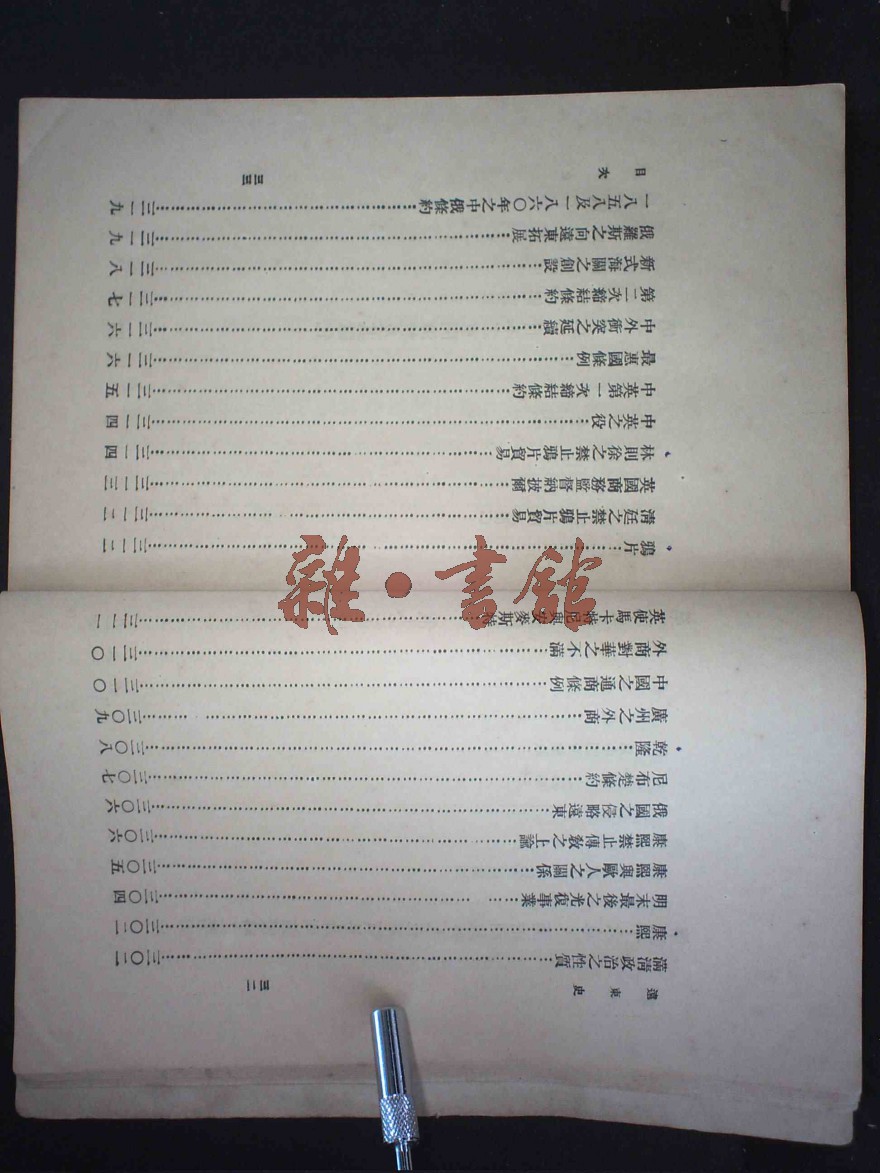 遠東史
三二
滿清政治之性質……三〇二
康熙……三〇二
明末最後之光復事業……三〇四
康熙與歐人之關係……三〇五
康熙禁止傳教之上諭……三〇六
俄國之侵略遠東……三〇六
尼布楚條約……三〇七
乾隆……三〇八
廣州之外商……三〇九
中國之通商條例……三一〇
外商對華之不滿……三一〇
英使馬卡特尼與麥斯特……三一一
鴉片……三一二
清廷之禁止鴉片貿易……三一二
英國商務監督納披爾……三一三
林則徐之禁止鴉片貿易……三一四
中英之役……三一四
中英第一次締結條約……三一五
最惠國條例……三一六
中外衝突之延續……三一六
第二次締結條約……三一七
新式海關之創設……三一八
俄羅斯之向遠東拓展……三一九
一八五八及一八六〇年之中俄條約……三一九
目次
三三
雜·書館